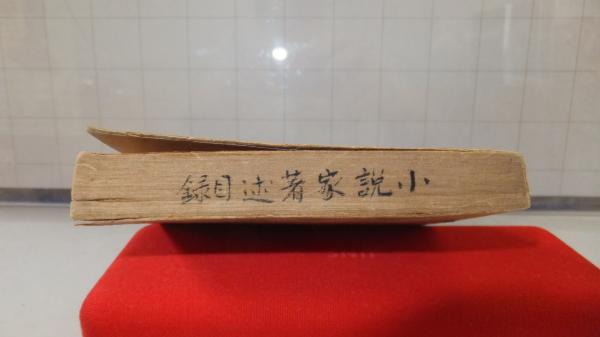 小說家著述目録